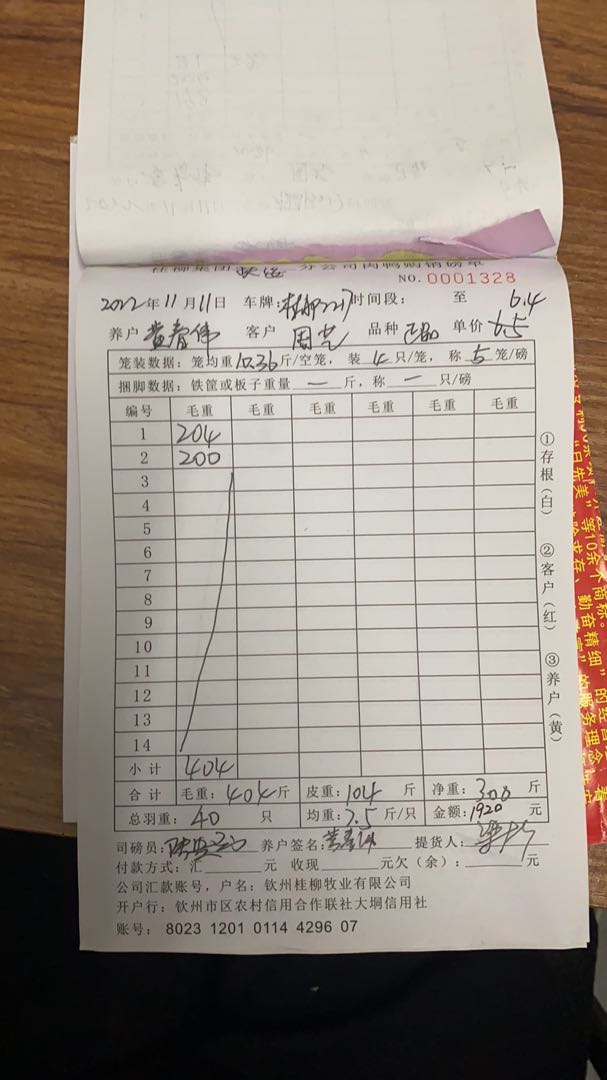 桂柳集团钦运分公司肉鸭购销磅单
NO. 0001328
2022年11月11日 车牌:桂柳2217时间段: 至 6.4
养户 黄春伟 客户 周艺 品种 单价 6.5
笼装数据:笼均重10.36斤/空笼,装4只/笼,称5笼/磅
捆脚数据:铁筐或板子重量 — 斤,称 — 只/磅
编号 毛重 毛重 毛重 毛重 毛重 毛重
1 204
2 200
3
4
5
6
7
8
9
10
11
12
13
14
小计 404
合计 毛重:404斤 皮重:104斤 净重:300斤
总羽重:40只 均重:7.5斤/只 金额:1920元
司磅员: 养户签名:黄春伟 提货人:
付款方式:汇 元 收现 元欠(余): 元
公司汇款账号,户名:钦州桂柳牧业有限公司
开户行:钦州市区农村信用合作联社大垌信用社
账号: 8023 1201 0114 4296 07
①存根(白) ②客户(红) ③养户(黄)
"日先美"等10余个商标。
勤奋精细"的经营
"的服务理念,